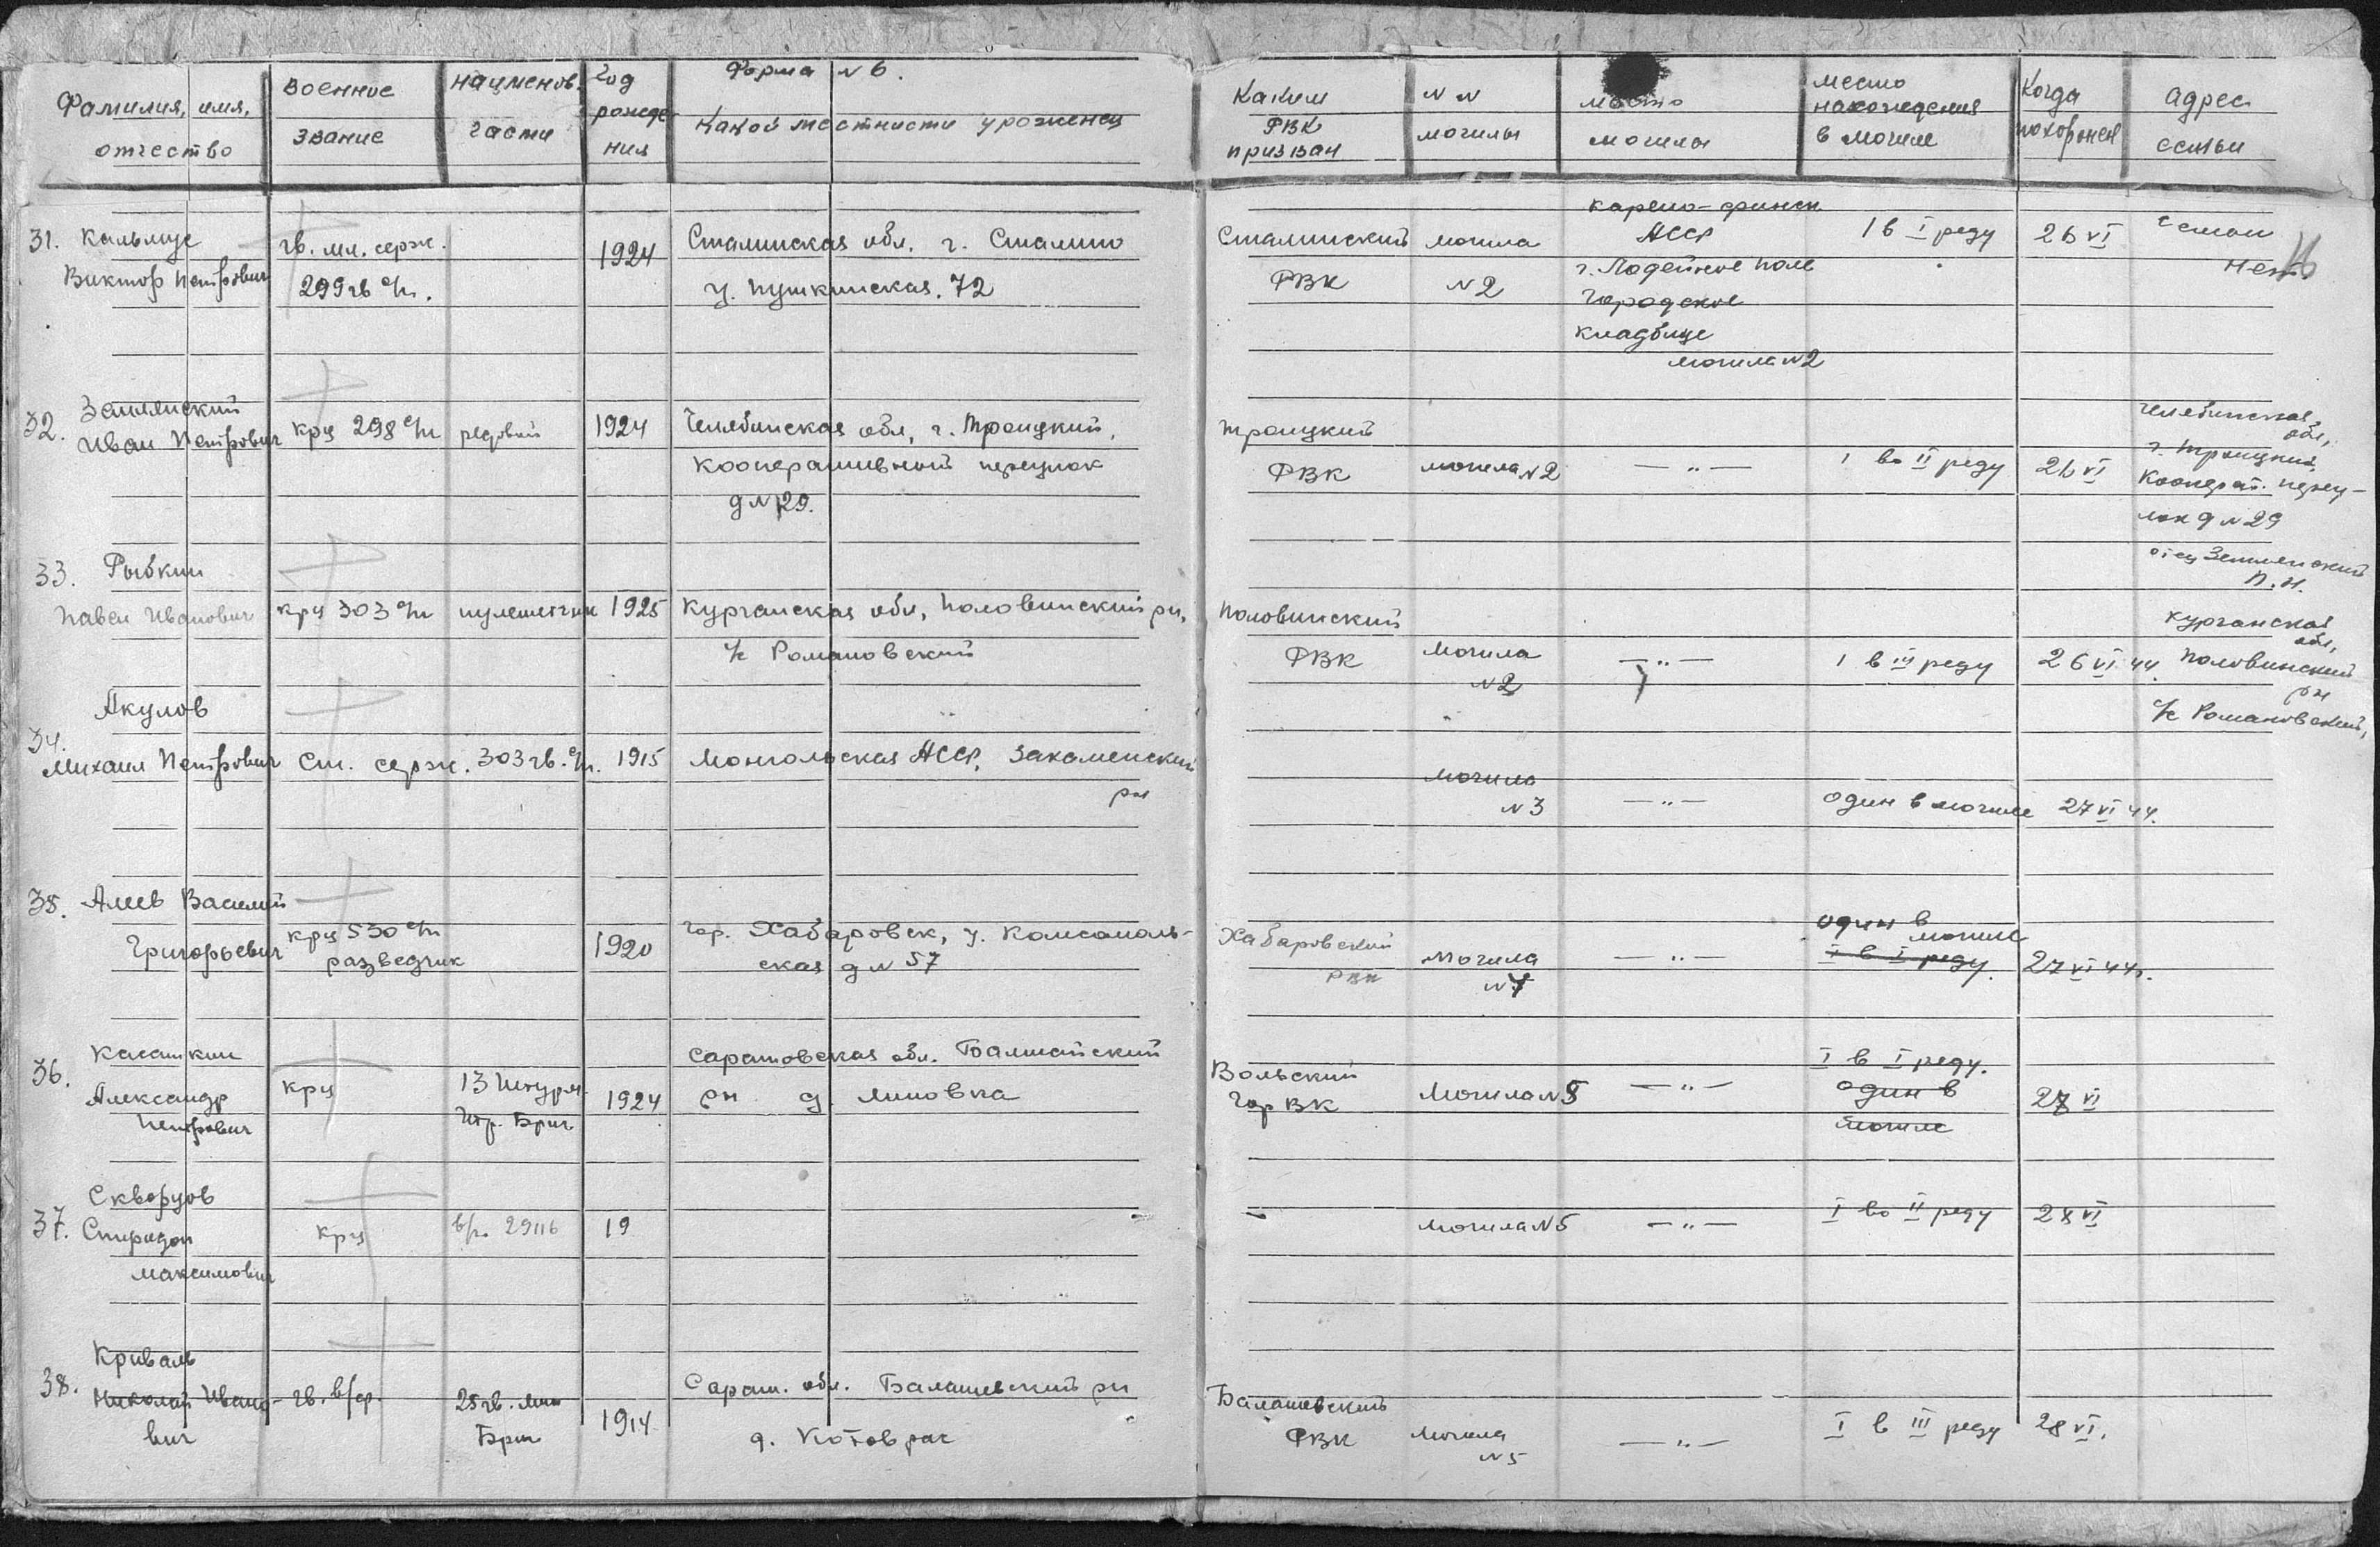 Форма N 6.
Фамилия, имя, отчество
Военное звание
наименов. части
Год рождения
Какой местности уроженец
Каким РВК призван
N N могилы
место могилы
место нахождения в могиле
Когда похоронен
адрес семьи
31. Кальмус
Виктор Петрович
гв. мл. серж.
299 гв с/п.
1924
Сталинская обл. г. Сталино
у. Пушкинская. 72
Сталинский
РВК
могила
N 2
Карело-финск
АССР
г. Лодейное поле
Городское
кладбище
могила N 2
1 в I реду
26 VI
семьи
нет
32. Землянский
Иван Петрович
крц 298 с/п
редовой
1924
Челябинская обл, г. Троицкий,
Кооперативный переулок
д N 29.
Троицкий
РВК
могила N 2
— " —
1 во II реду
26 VI
Челябинская
обл,
г. Троицкий,
Кооперат. переу-
лок д N 29
отец Землянский
П. И.
33. Рыбкин
Павел Иванович
крц 303 с/п
пулеметчик
1925
Курганская обл, Половинский рн,
с/с Романовский
Половинский
РВК
могила
N 2
— " —
1 в III реду
26 VI 44.
Курганская
обл,
Половинский
рн
с/с Романовский,
34. Акулов
Михаил Петрович
Ст. серж.
303 гв. с/п.
1915
Монгольская АССР, Закаменский
рн
могила
N 3
— " —
один в могиле
27 VI 44.
35. Алеев Василий
Григорьевич
крц 530 с/п
разведчик
1920
гор. Хабаровск, у. Комсомоль-
ская д N 57
Хабаровский
РВК
могила
N 4
— " —
один в
могиле
I в I реду.
27 VI 44г.
36. Касаткин
Александр
Петрович
крц
13 Штурм.
Бриг
1924
Саратовская обл. Балтайский
рн д. Липовка
Вольский
Гор ВК
Могила N 5
— " —
I в I реду.
один в
могиле
28 VI
37. Скворцов
Спиридон
Максимович
крц
в/ч. 29116
19
могила N 5
— " —
I во II реду
28 VI
38. Криваль
Николай Ивано-
вич
гв. в/ф.
25 гв. мин
Бриг
1914
Сарат. обл. Балашевский рн
д. Котоврас
Балашевский
РВК
Могила
N 5
— " —
I в III реду
28 VI.